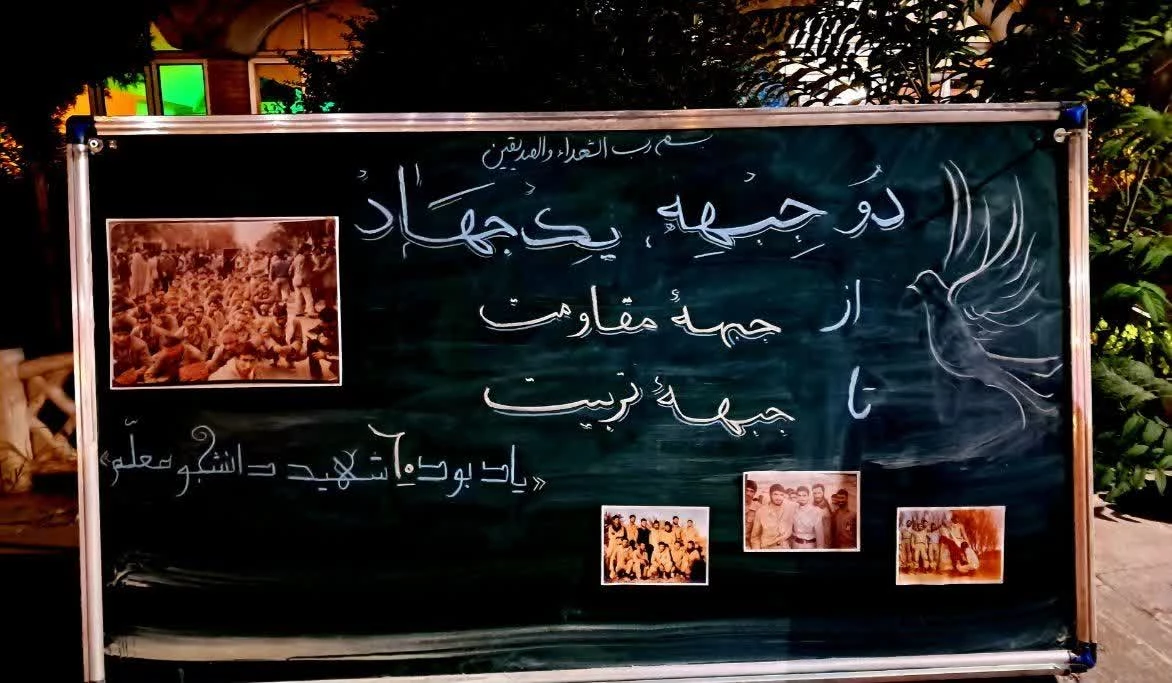 بسم رب الشهداء والصدیقین
دُو جِبْهِه، یِکْ جهَادْ
از جبههٔ مقاومت
تا جبههٔ تربیت
«یادبود ۶۰ شهید دانشجو معلّم»